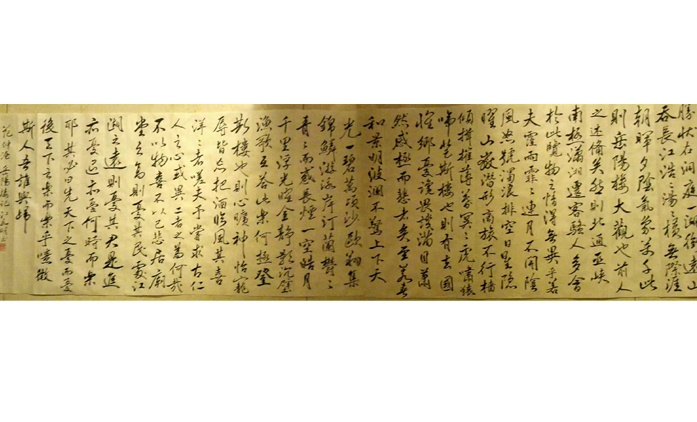 勝狀在洞庭一湖銜遠山
吞長江浩浩湯湯橫無際涯
朝暉夕陰氣象萬千此
則岳陽樓大觀也前人
之述備矣然則北通巫峽
南極瀟湘遷客騷人多會
於此覽物之情得無異乎若
夫霪雨霏霏連月不開陰
風怒號濁浪排空日星隱
曜山嶽潛形商旅不行檣
傾楫摧薄暮冥冥虎嘯猿
啼登斯樓也則有去國
懷鄉憂讒畏譏滿目蕭
然感極而悲者矣至若春
和景明波瀾不驚上下天
光一碧萬頃沙鷗翔集
錦鱗游泳岸汀蘭鬱鬱
青青而或長煙一空皓月
千里浮光曜金靜影沉璧
漁歌互答此樂何極登
斯樓也則心曠神怡寵
辱皆忘把酒臨風其喜
洋洋者嗟夫予嘗求古仁
人之心或異二者之為何哉
不以物喜不以己悲居廟
堂之高則憂其民處江
湖之遠則憂其君是進
亦憂退亦憂何時而樂
耶其必曰先天下之憂而憂
後天下之樂而樂乎噫微
斯人吾誰與歸
范仲淹岳陽樓記